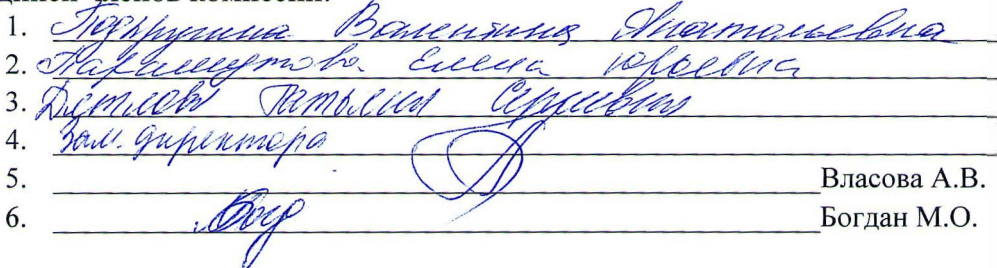 членов комиссии:
1. Подпругина Валентина Анатольевна
2. Елена Юрьевна
3. Дятлова Татьяна Сергеевна
4. Зам. директора
5. Власова А.В.
6. Богдан М.О.